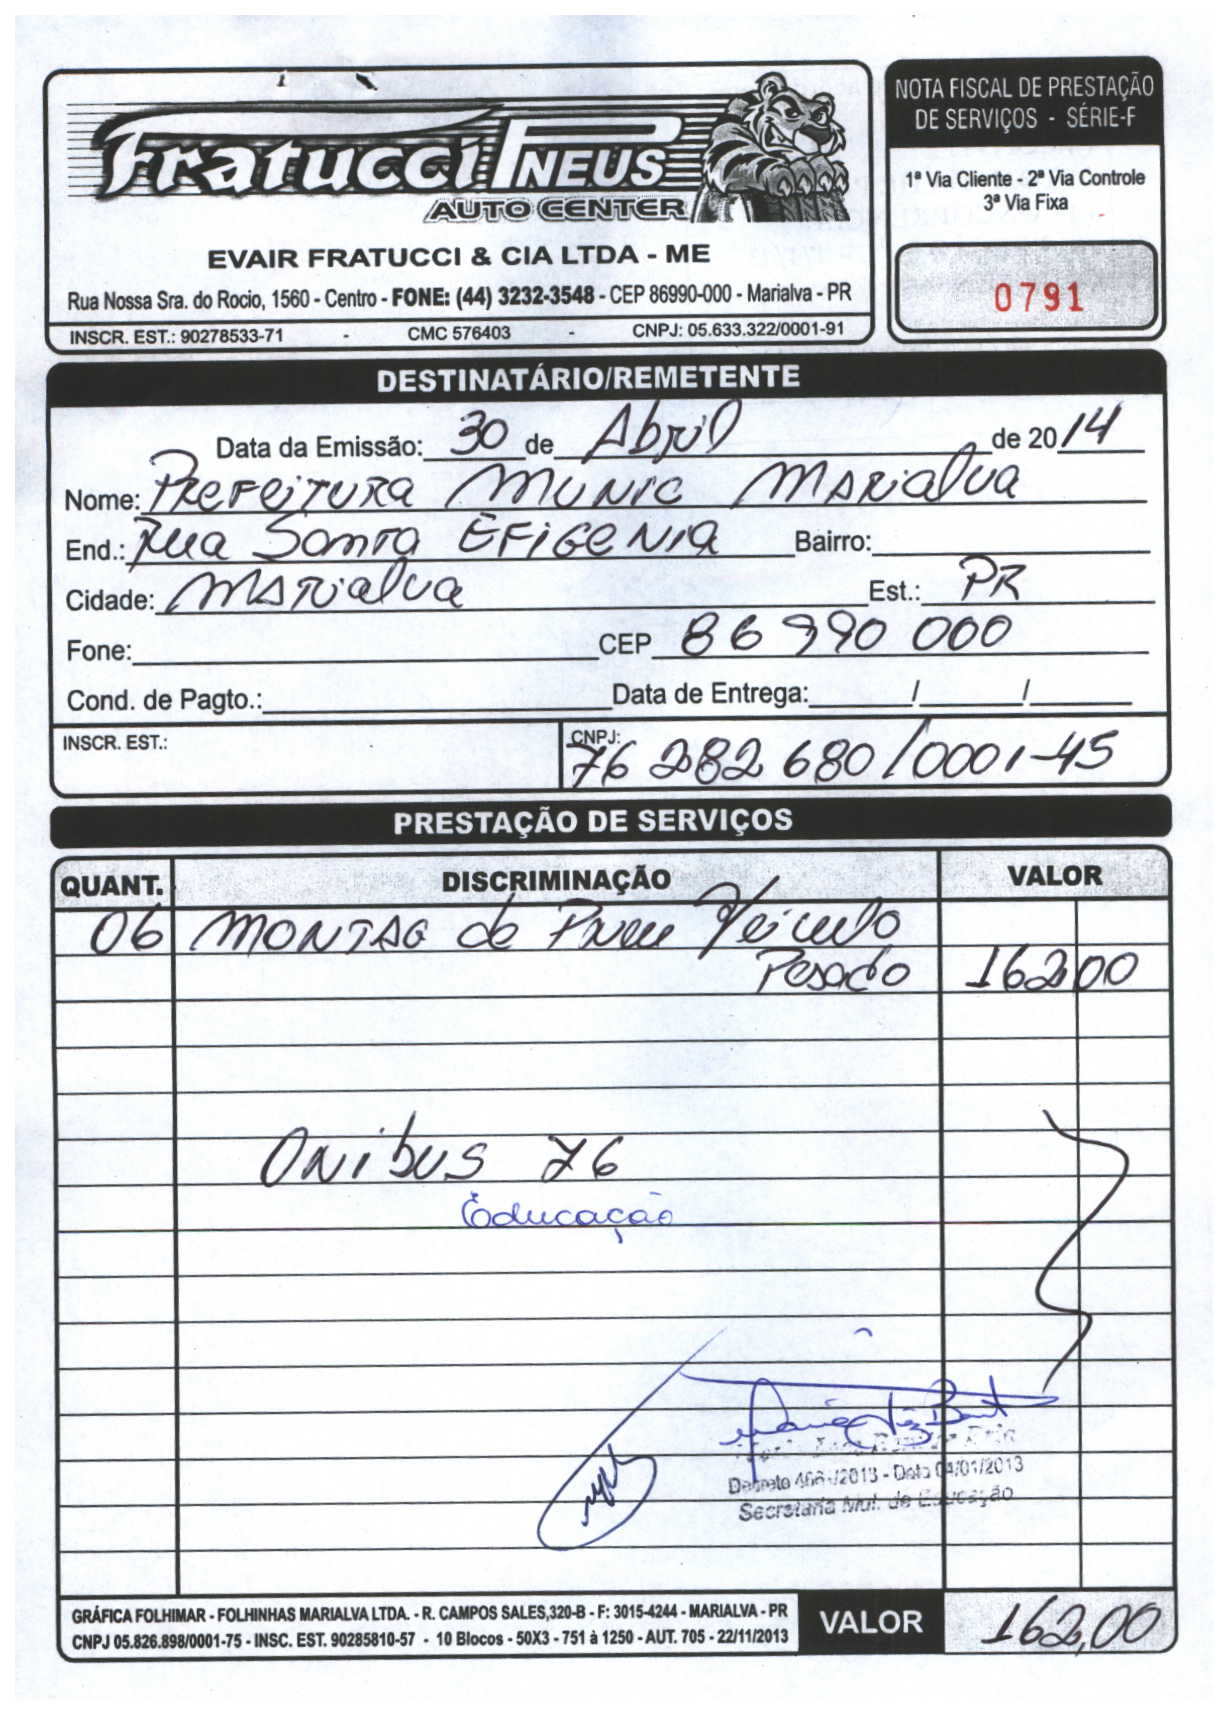 Fratucci PNEUS
AUTO CENTER
EVAIR FRATUCCI & CIA LTDA - ME
Rua Nossa Sra. do Rocio, 1560 - Centro - FONE: (44) 3232-3548 - CEP 86990-000 - Marialva - PR
INSCR. EST.: 90278533-71 - CMC 576403 - CNPJ: 05.633.322/0001-91
NOTA FISCAL DE PRESTAÇÃO
DE SERVIÇOS - SÉRIE-F
1ª Via Cliente - 2ª Via Controle
3ª Via Fixa
0791
DESTINATÁRIO/REMETENTE
Data da Emissão: 30 de Abril de 2014
Nome: Prefeitura Munic Marialva
End.: Rua Santa Efigenia Bairro:
Cidade: Marialva Est.: PR
Fone: CEP 86990 000
Cond. de Pagto.: Data de Entrega: / /
INSCR. EST.: CNPJ: 76 282 680/0001-45
PRESTAÇÃO DE SERVIÇOS
QUANT. DISCRIMINAÇÃO VALOR
06 Montag de Pneu Veiculo
Pesado 162,00
Onibus 76
Educação
2013 - Data 04/01/2013
Secretaria Mul. de Educação
GRÁFICA FOLHIMAR - FOLHINHAS MARIALVA LTDA. - R. CAMPOS SALES,320-B - F: 3015-4244 - MARIALVA - PR
CNPJ 05.826.898/0001-75 - INSC. EST. 90285810-57 - 10 Blocos - 50X3 - 751 à 1250 - AUT. 705 - 22/11/2013
VALOR 162,00